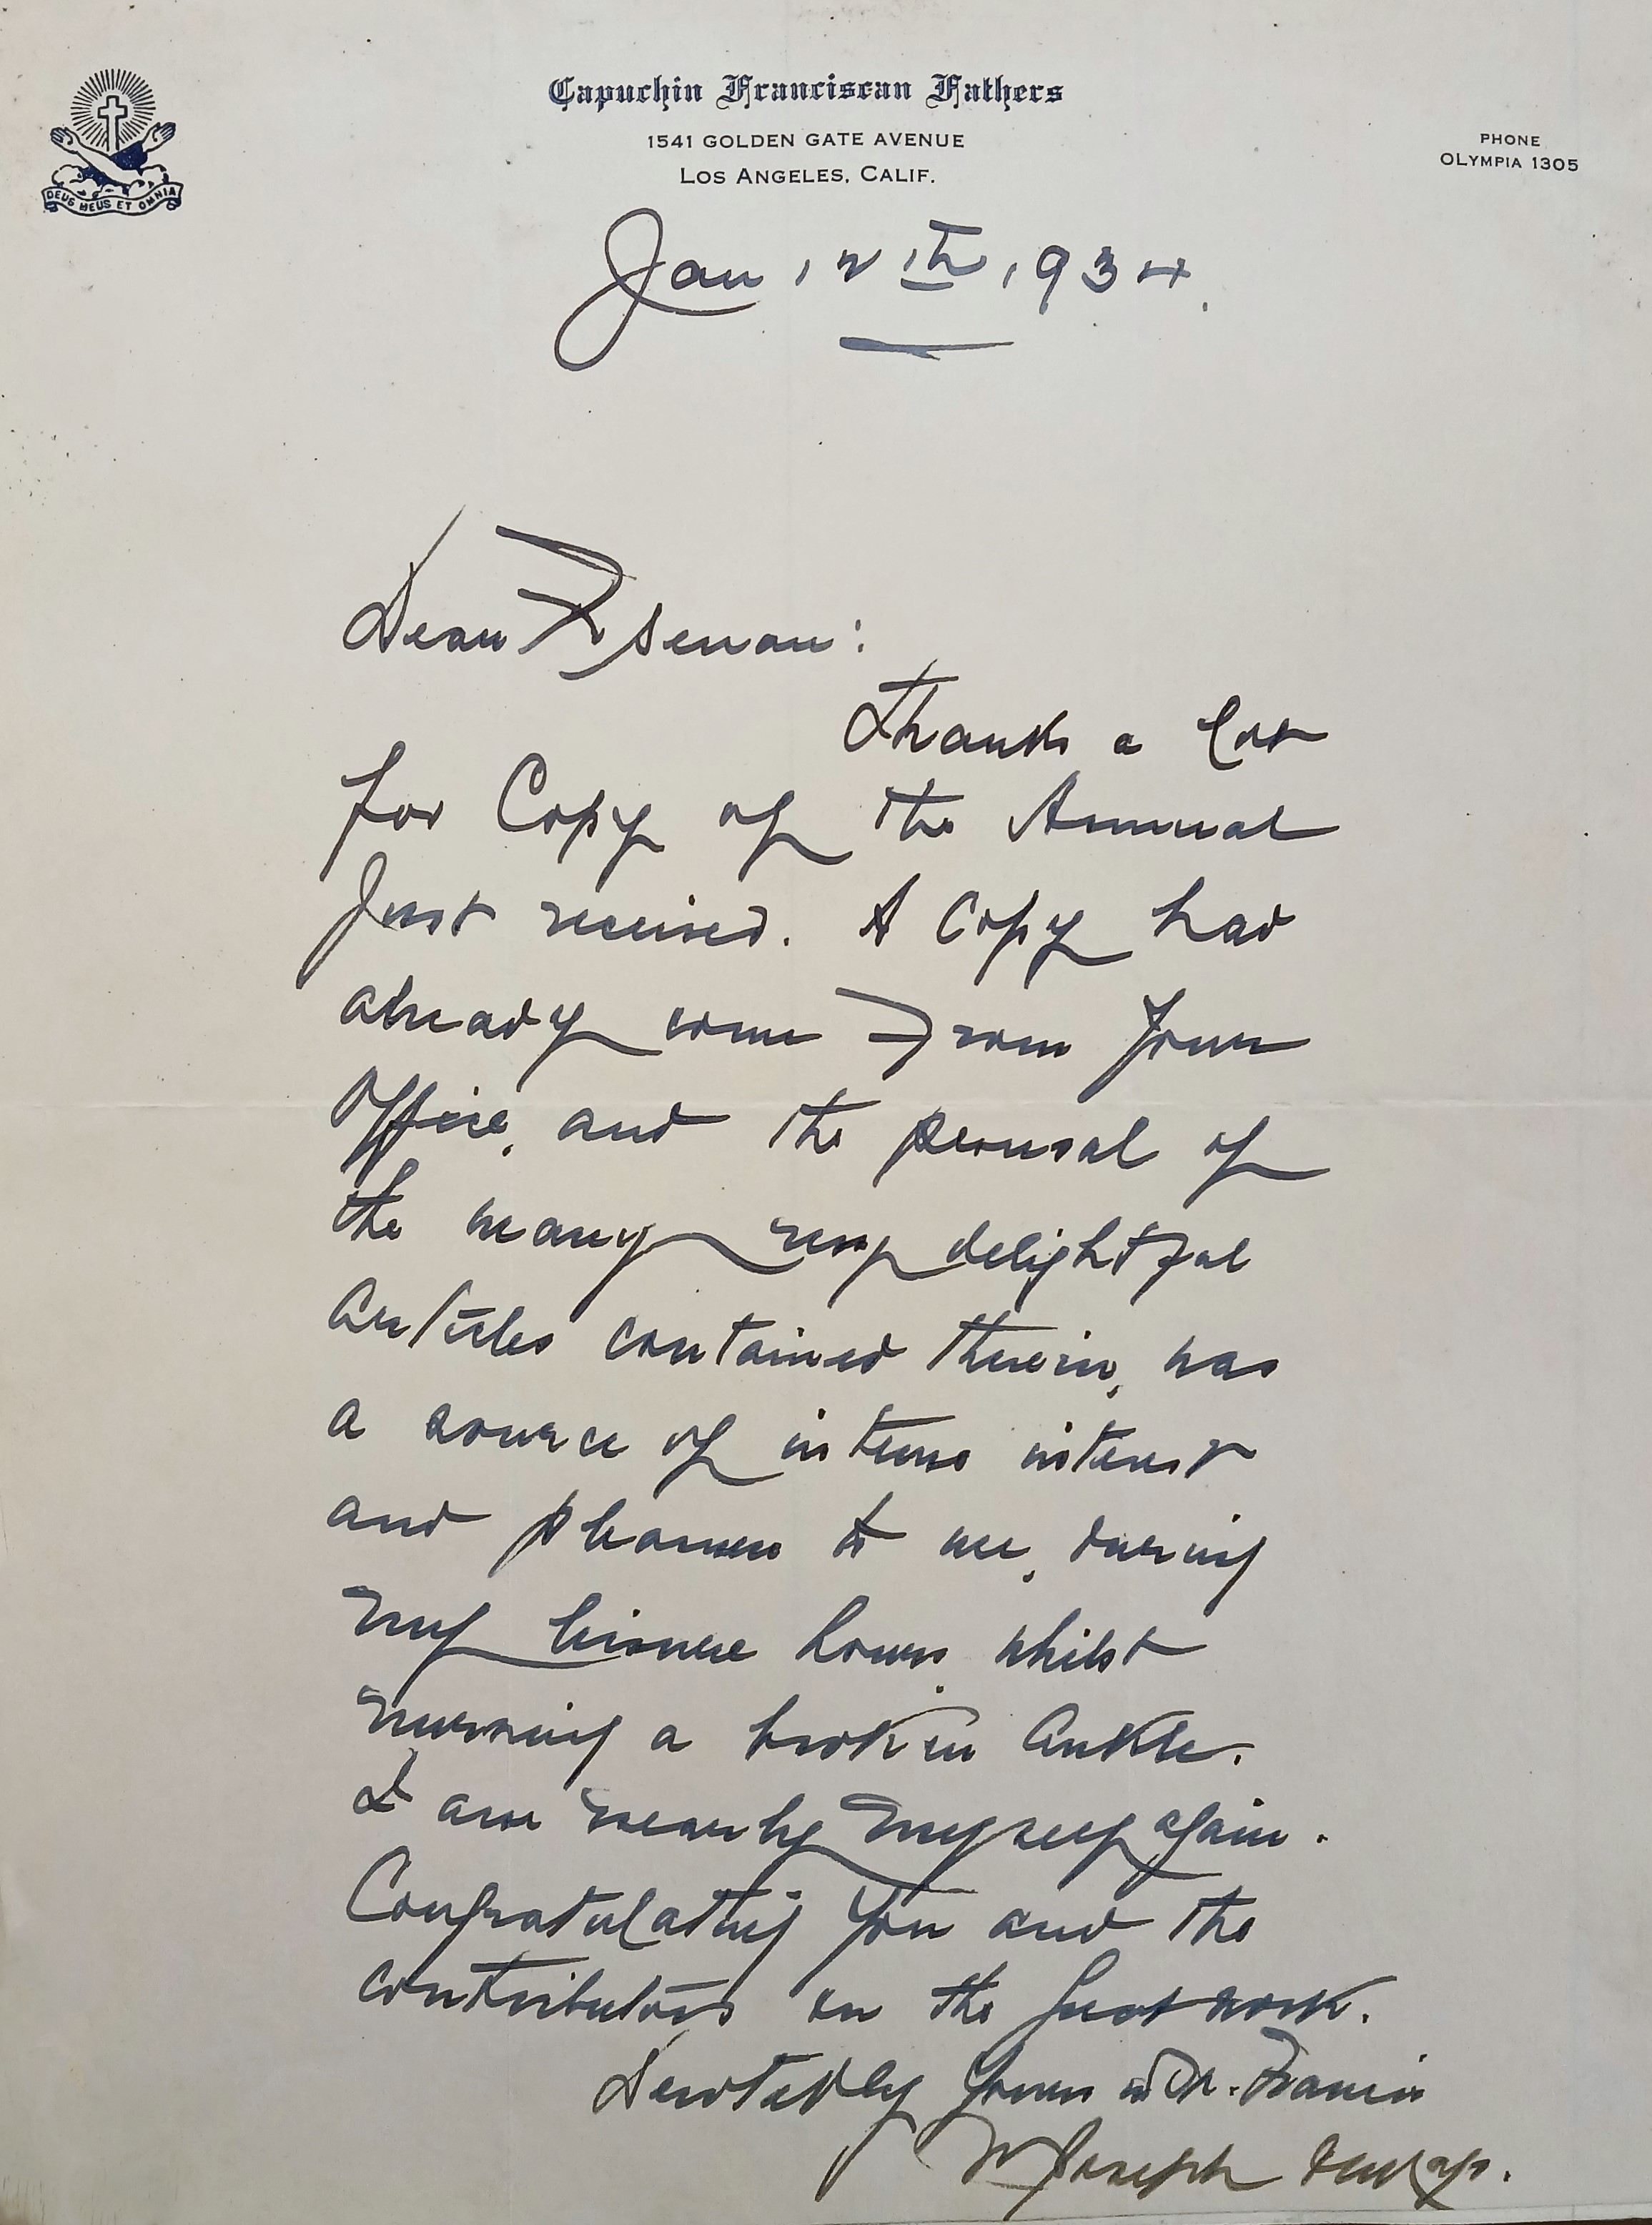 Capuchin Franciscan Fathers
1541 GOLDEN GATE AVENUE
LOS ANGELES, CALIF.
PHONE
OLYMPIA 1305
DEUS MEUS ET OMNIA
Jan 12th 1934.
Dear Fr Senan:
Thanks a lot
for Copy of the Annual
Just received. A Copy had
already come From Your
Office, and the perusal of
the many very delightful
Articles contained therein, was
a source of intense interest
and pleasure to me, during
my leisure hours whilst
nursing a broken Ankle.
I am nearly myself again.
Congratulating You and the
contributors on the great work.
Devotedly Yours in St. Francis
Fr Joseph